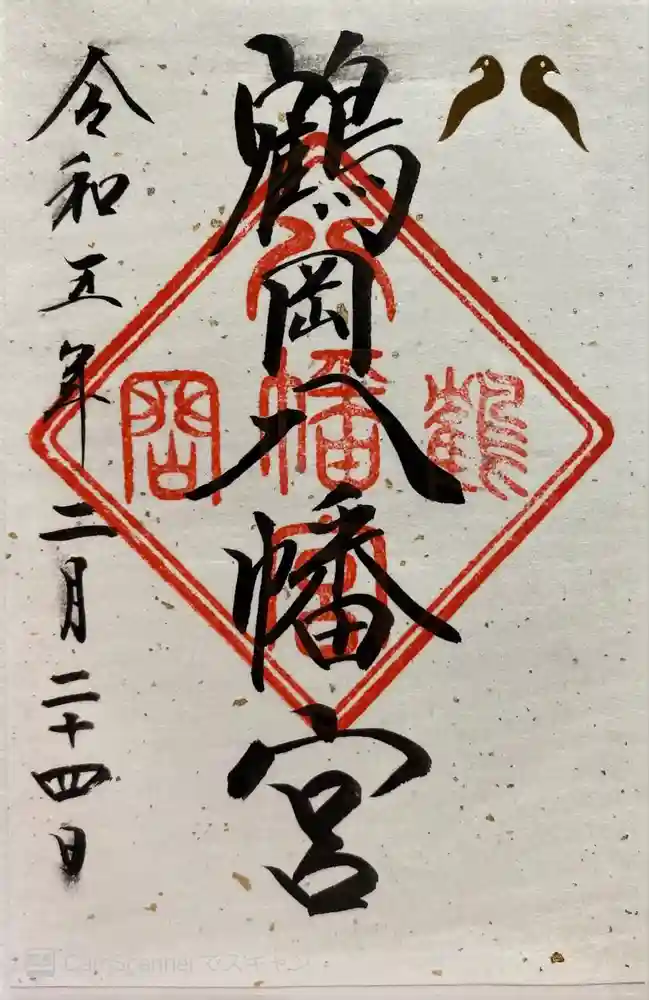 鶴岡八幡宮
鶴
八幡宮
岡
令和五年二月二十四日
CamScannerでスキャン